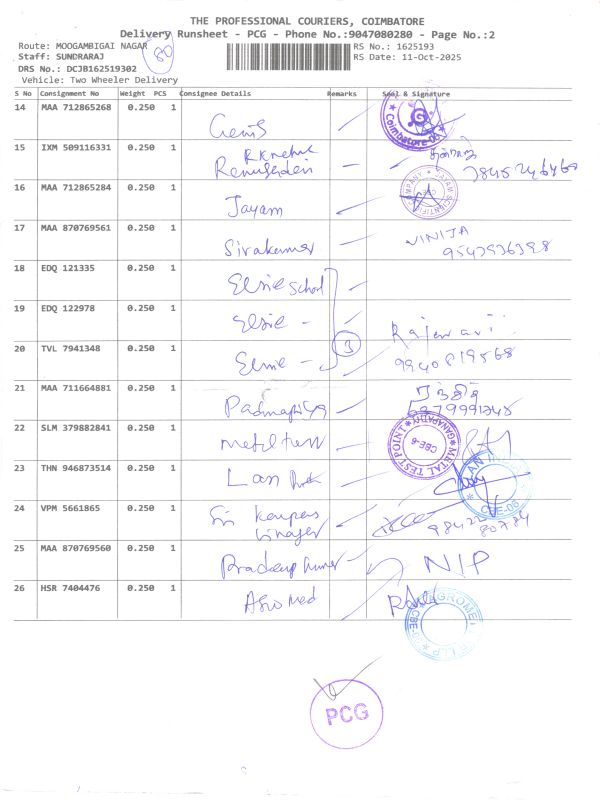 THE PROFESSIONAL COURIERS, COIMBATORE
Delivery Runsheet - PCG - Phone No.:9047080280 - Page No.:2
Route: MOOGAMBIGAI NAGAR RS No.: 1625193
Staff: SUNDRARAJ 80 RS Date: 11-Oct-2025
DRS No.: DCJB162519302
Vehicle: Two Wheeler Delivery
S No Consignment No Weight PCS Consignee Details Remarks Seal & Signature
14 MAA 712865268 0.250 1 Coimbatore-06
15 IXM 509116331 0.250 1
16 MAA 712865284 0.250 1 Jayam
17 MAA 870769561 0.250 1 Sivakumar VINIJA
18 EDQ 121335 0.250 1 Elsie School
19 EDQ 122978 0.250 1 Elsie - 3
20 TVL 7941348 0.250 1 Elsie - 9940819568
21 MAA 711664881 0.250 1
22 SLM 379882841 0.250 1 METAL TESTPOINT GANAPATHY CBE-6
23 THN 946873514 0.250 1 CBE-06
24 VPM 5661865 0.250 1 Sri
Vinayar
25 MAA 870769560 0.250 1 Pradeep Kumar N/P
26 HSR 7404476 0.250 1 Agro Med
PCG